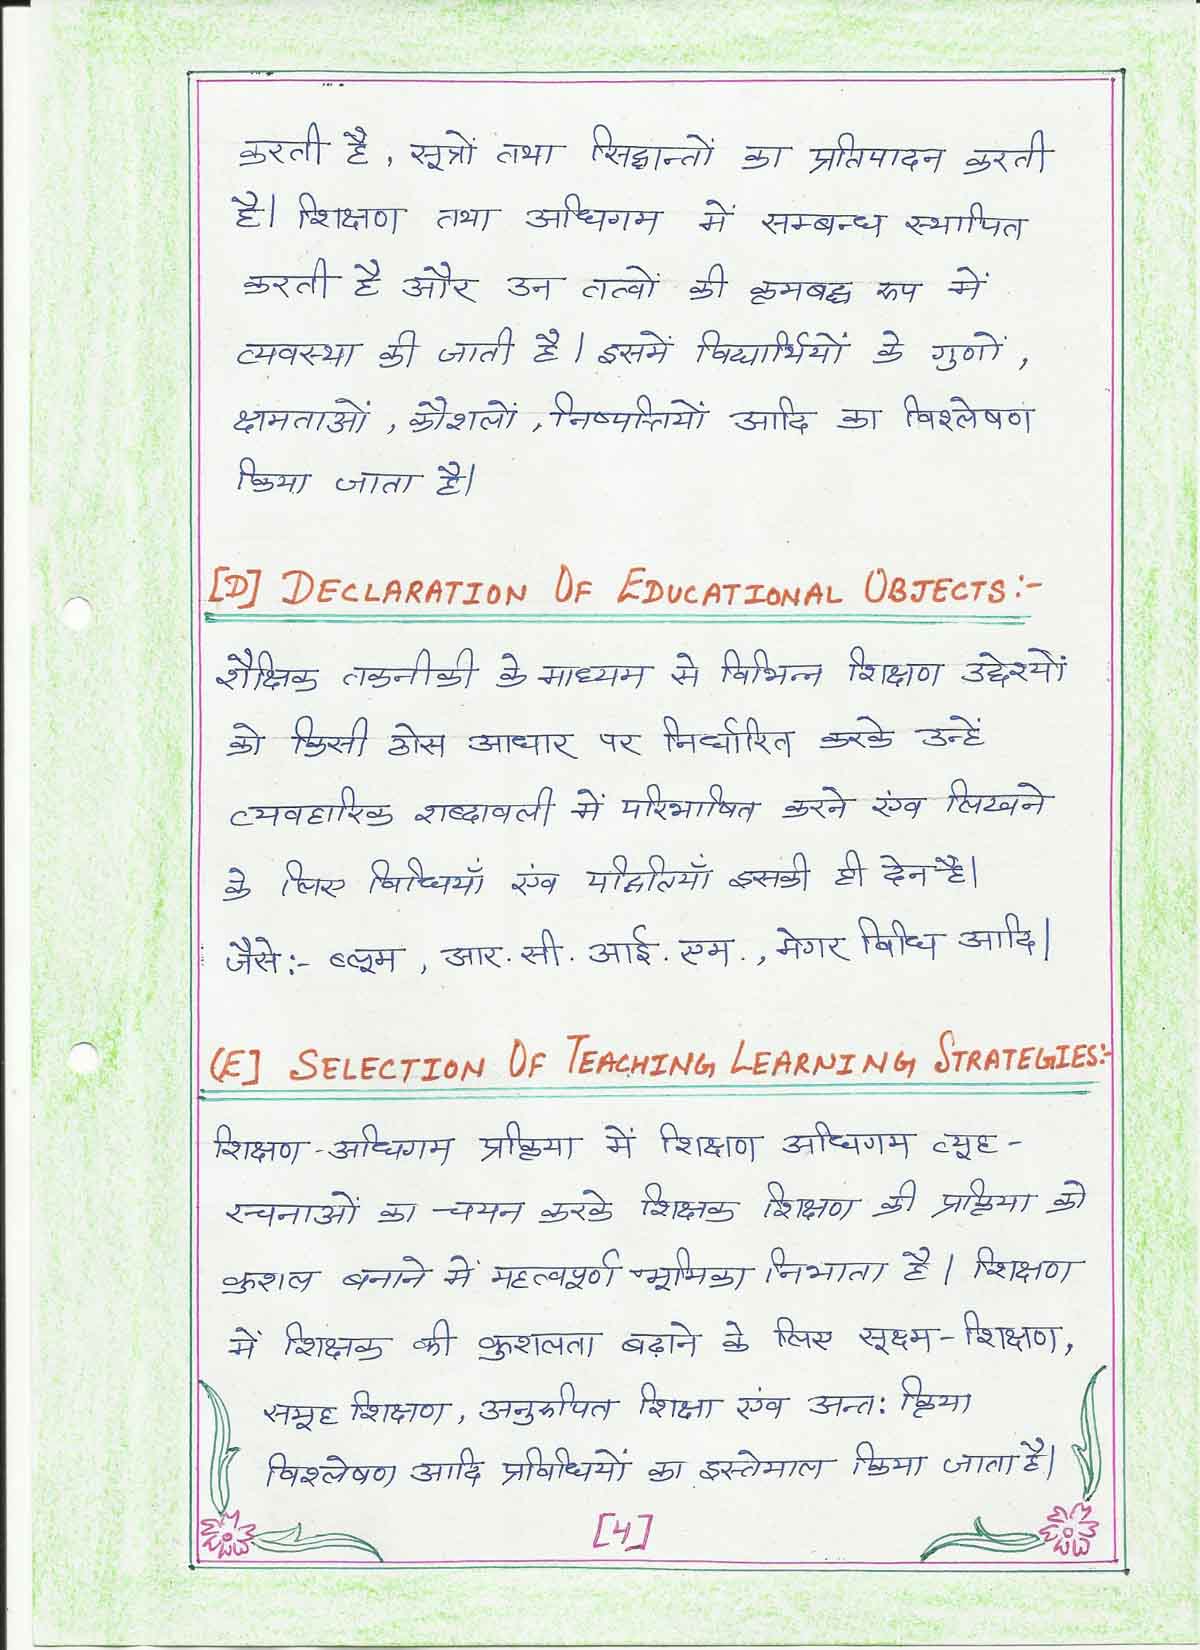 करती है, सूत्रों तथा सिद्धान्तों का प्रतिपादन करती
है। शिक्षण तथा अधिगम में सम्बन्ध स्थापित
करती है और उन तत्वों की क्रमबद्ध रूप में
व्यवस्था की जाती है। इसमें विद्यार्थियों के गुणों,
क्षमताओं, कौशलों, निष्पत्तियों आदि का विश्लेषण
किया जाता है।
[D] DECLARATION OF EDUCATIONAL OBJECTS:-
शैक्षिक तकनीकी के माध्यम से विभिन्न शिक्षण उद्देश्यों
को किसी ठोस आधार पर निर्धारित करके उन्हें
व्यवहारिक शब्दावली में परिभाषित करने एंव लिखने
के लिए विधियाँ एंव पद्धतियाँ इसकी ही देन है।
जैसे:- ब्लूम, आर.सी.आई.एम., मेगर विधि आदि।
(E] SELECTION OF TEACHING LEARNING STRATEGIES:-
शिक्षण-अधिगम प्रक्रिया में शिक्षण अधिगम व्यूह-
रचनाओं का चयन करके शिक्षक शिक्षण की प्रक्रिया को
कुशल बनाने में महत्वपूर्ण भूमिका निभाता है। शिक्षण
में शिक्षक की कुशलता बढ़ाने के लिए सूक्ष्म-शिक्षण,
समूह शिक्षण, अनुरूपित शिक्षा एंव अन्त: क्रिया
विश्लेषण आदि प्रविधियों का इस्तेमाल किया जाता है।
[4]